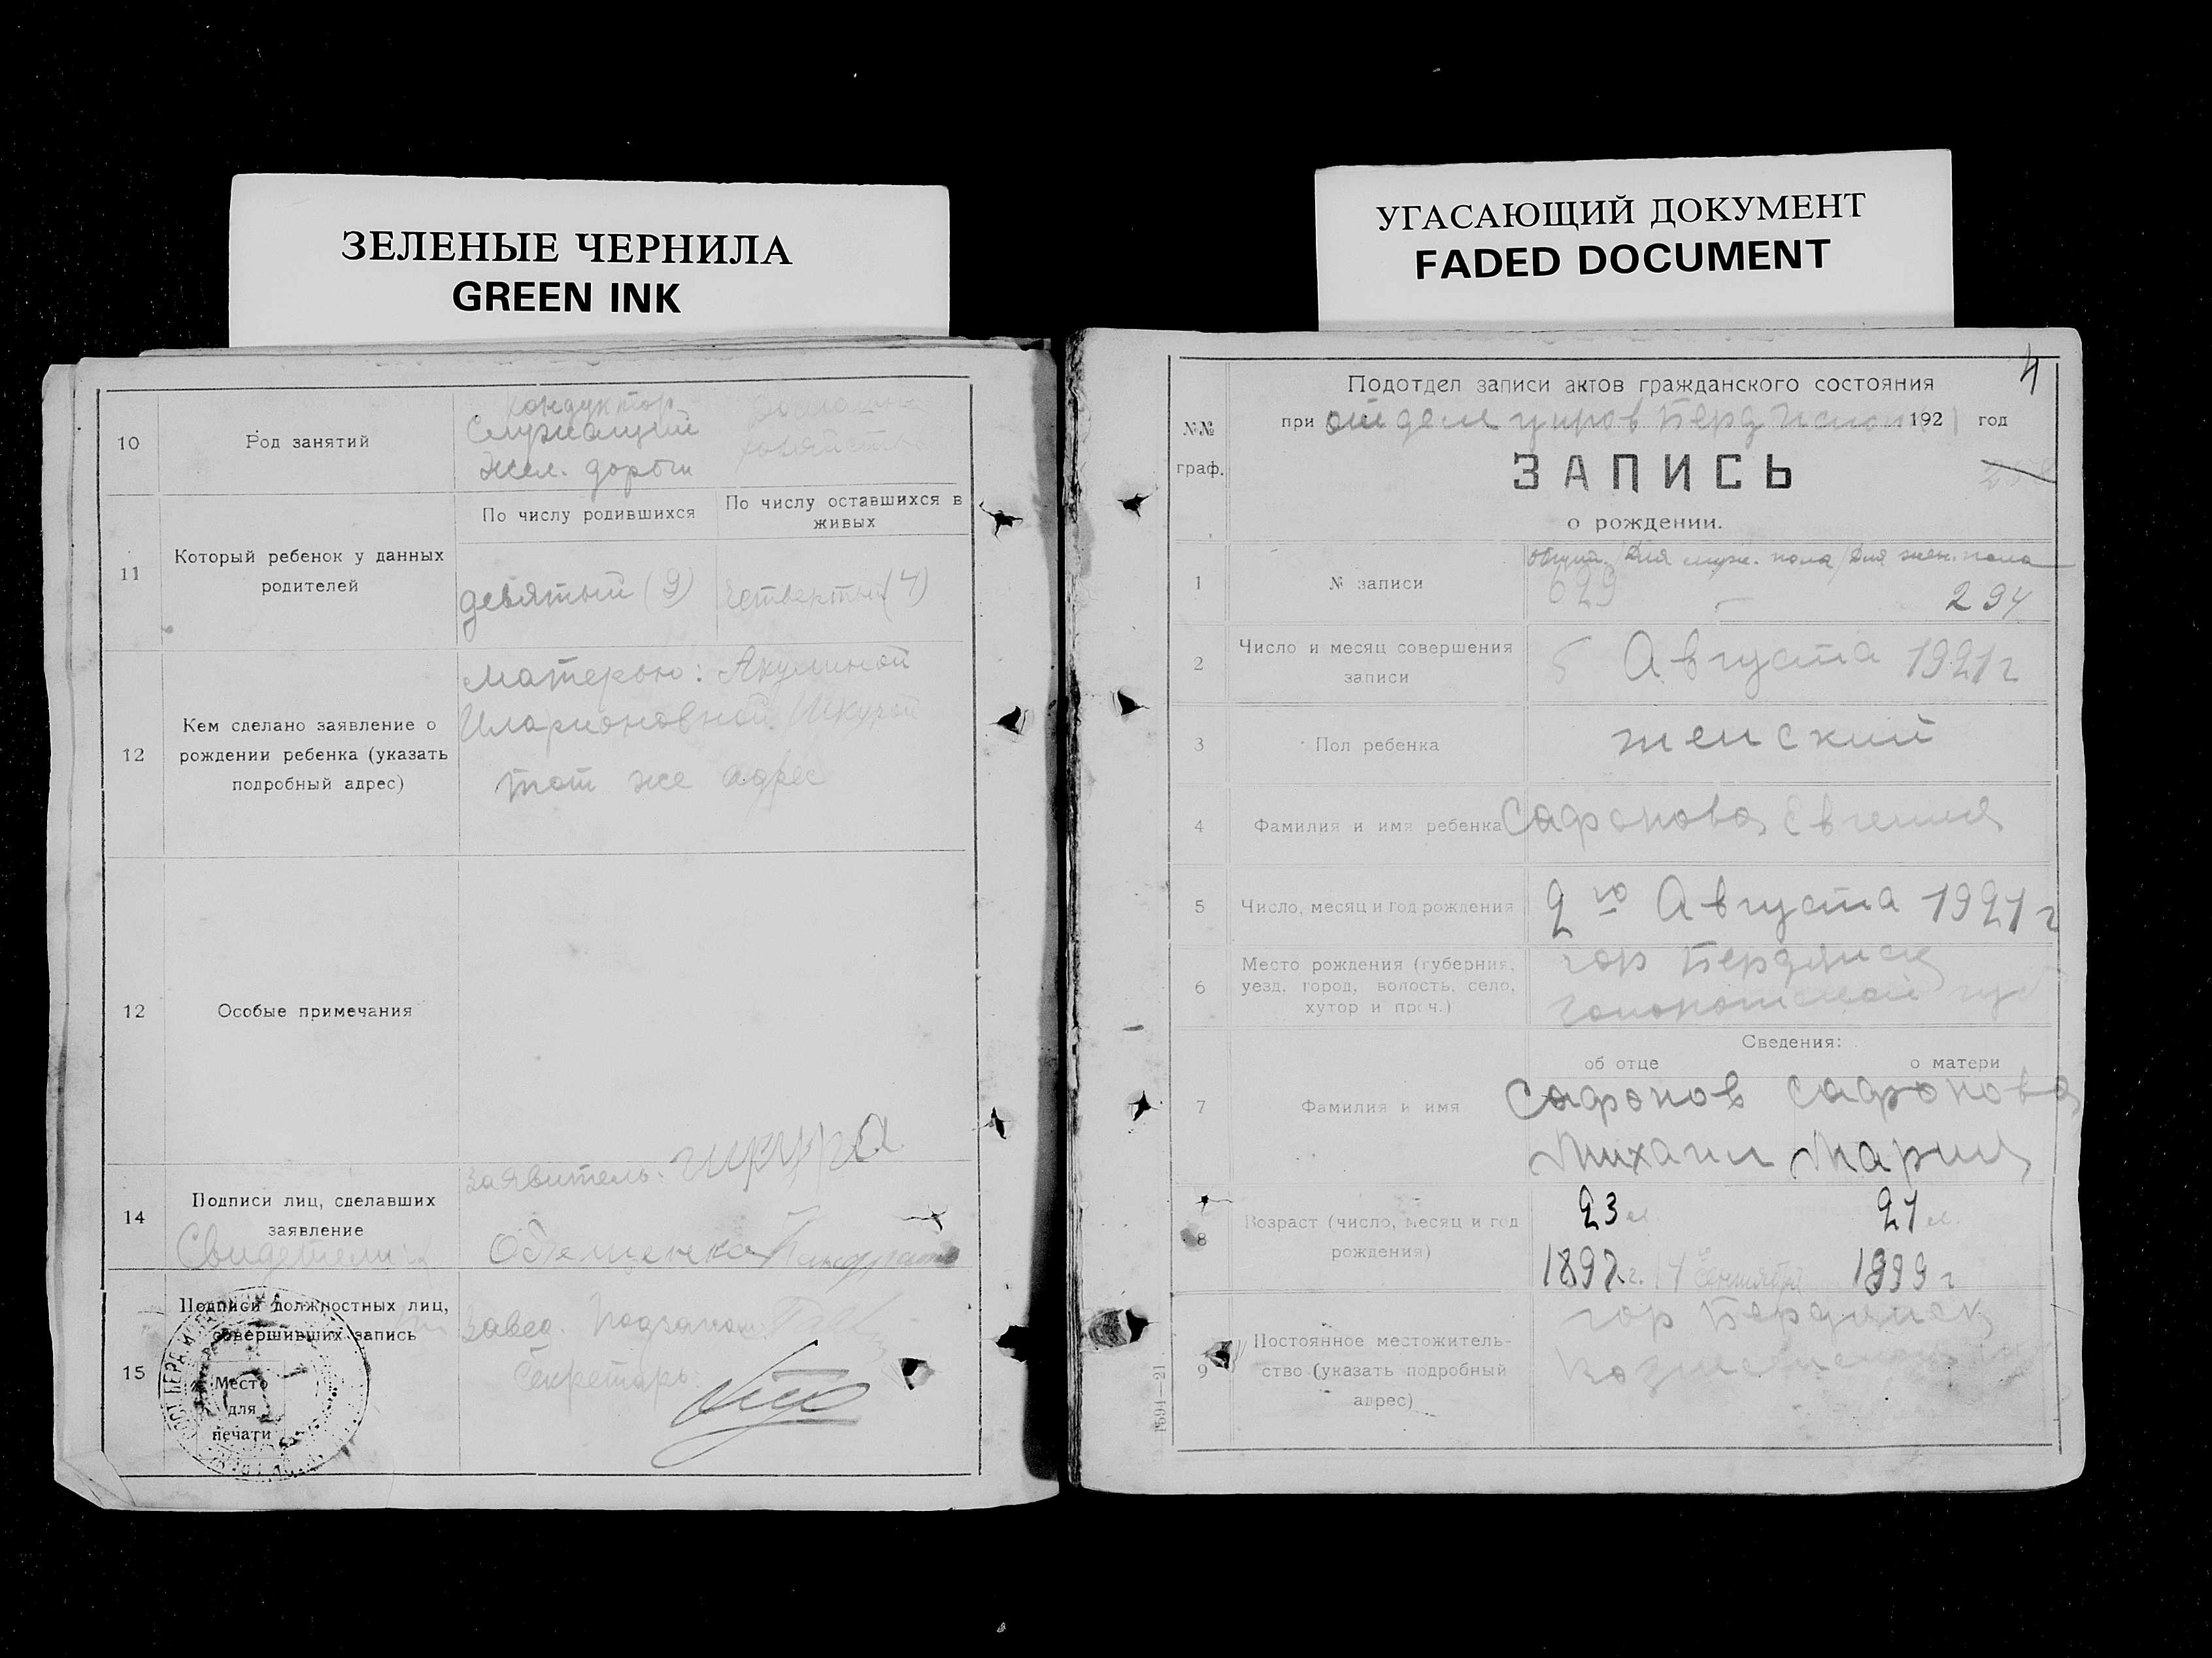 ЗЕЛЕНЫЕ ЧЕРНИЛА
GREEN INK
10
Род занятий
Кондуктор
Служащий
жел. дороги
домашнее
хозяйство
11
Который ребенок у данных
родителей
По числу родившихся
По числу оставшихся в
живых
девятый (9)
четвертый (4)
12
Кем сделано заявление о
рождении ребенка (указать
подробный адрес)
Матерью: Акулиной
Иларионовной Шкурой
тот же адрес
12
Особые примечания
14
Подписи лиц, сделавших
заявление
Свидетели
Заявитель:
15
Подписи должностных лиц,
совершивших запись
Место
для
печати
Завед.
Секретарь
УГАСАЮЩИЙ ДОКУМЕНТ
FADED DOCUMENT
4
№№
граф.
Подотдел записи актов гражданского состояния
при отделе 192 год
ЗАПИСЬ
о рождении.
1
№ записи
Общий / Для муж. пола / Для жен. пола
629 — 294
2
Число и месяц совершения
записи
5 Августа 1921 г
3
Пол ребенка
женский
4
Фамилия и имя ребенка
Сафонова Евгения
5
Число, месяц и год рождения
2го Августа 1921 г
6
Место рождения (губерния,
уезд, город, волость, село,
хутор и проч.)
гор Бердянск
Сведения:
об отце
о матери
7
Фамилия и имя
Сафонов
Михаил
Сафонова
Мария
8
Возраст (число, месяц и год
рождения)
23 л.
21 л.
1897 г.
1899 г
9
Постоянное местожитель-
ство (указать подробный
адрес)
гор Бердянск
1594—21